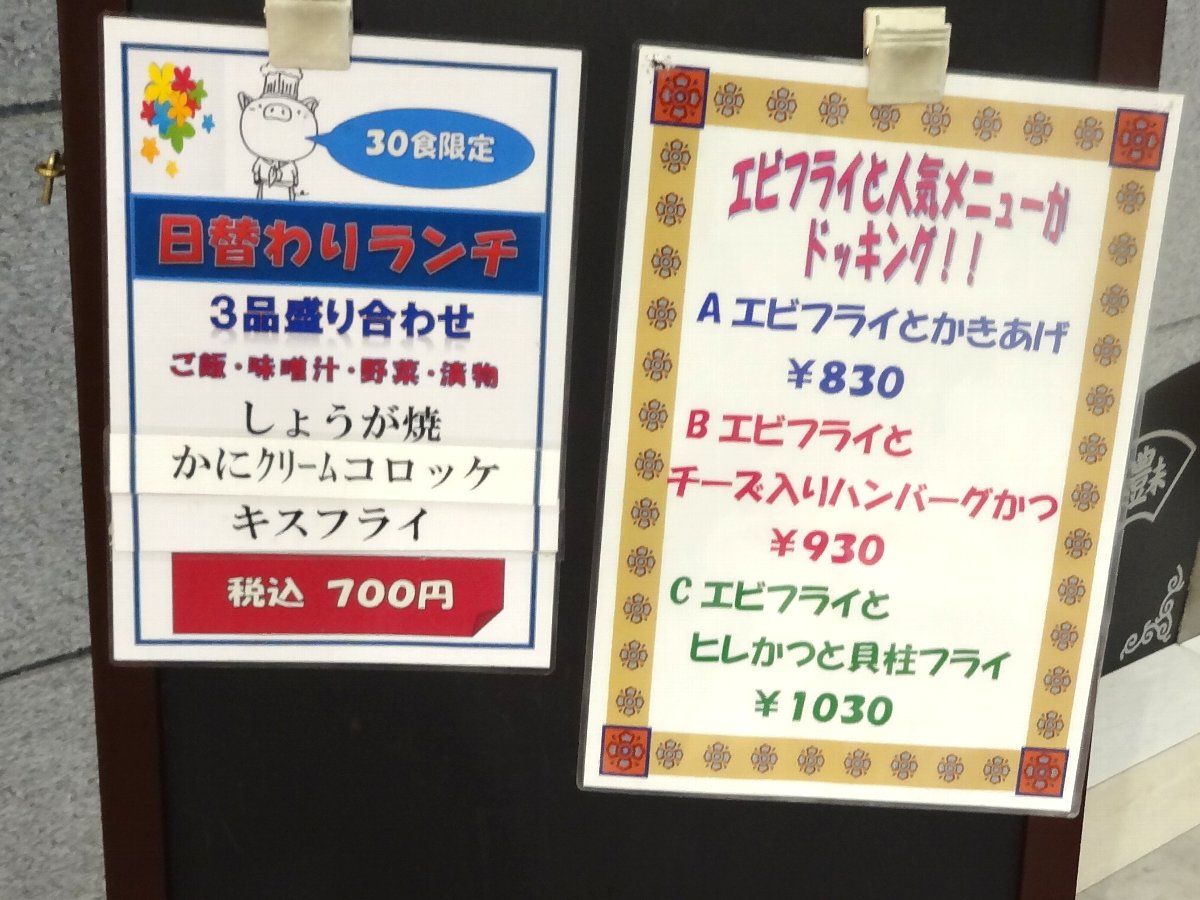 30食限定
日替わりランチ
3品盛り合わせ
ご飯・味噌汁・野菜・漬物
しょうが焼
かにクリームコロッケ
キスフライ
税込 700円
エビフライと人気メニューが
ドッキング!!
A エビフライとかきあげ
¥830
B エビフライと
チーズ入りハンバーグかつ
¥930
C エビフライと
ヒレかつと貝柱フライ
¥1030